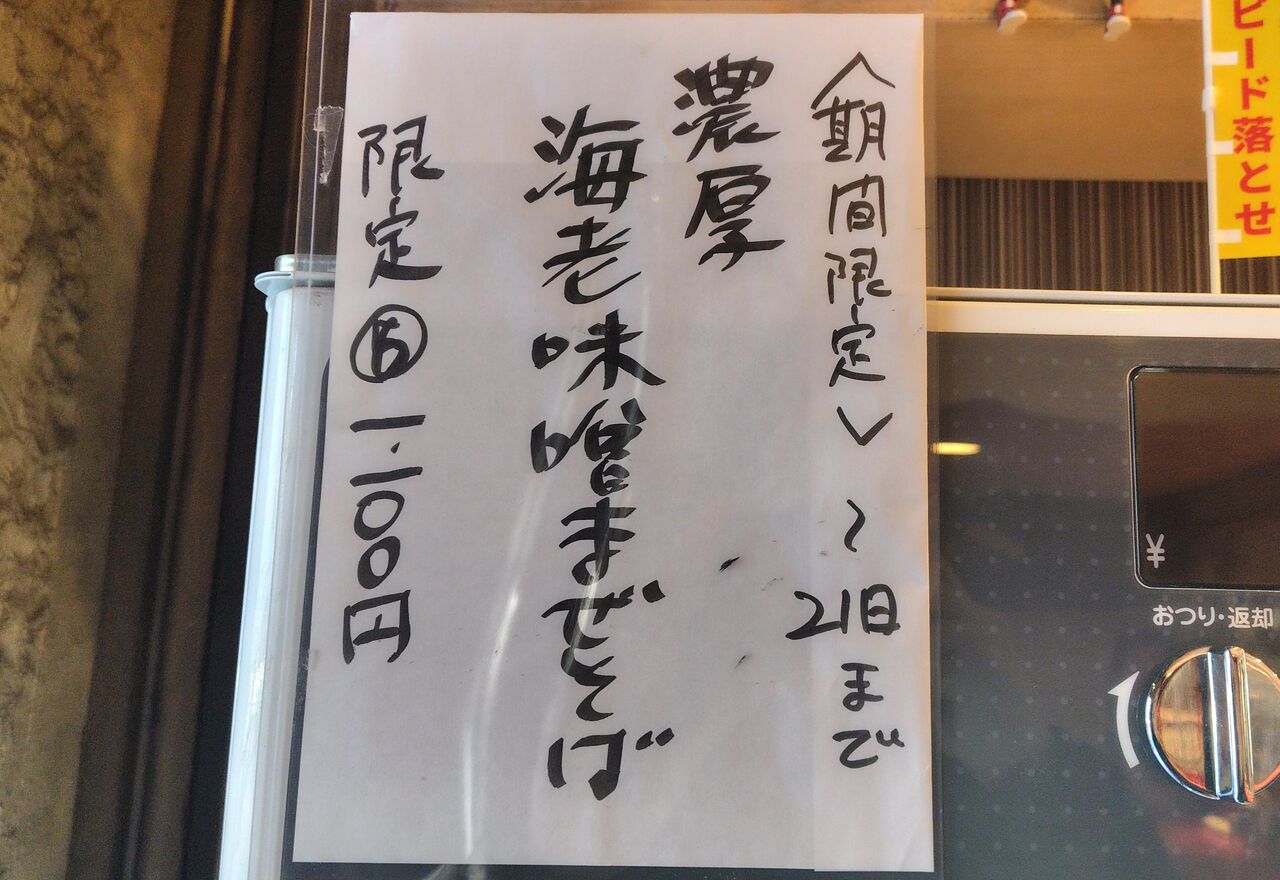 〈期間限定〉 〜21日まで
濃厚
海老味噌まぜそば
限定 一.一〇〇円
ピード落とせ
¥
おつり・返却